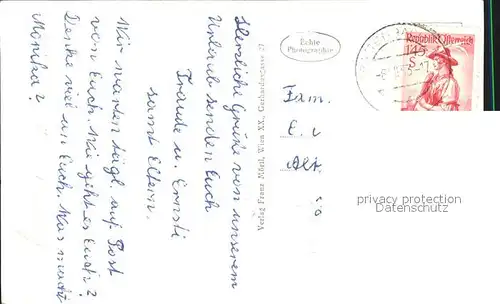 Herzliche Grüße von unserem
Urlaub senden Euch
Traude u. Ernsti
samt Eltern.
Wir warten tägl. auf Post
von Euch. Wie geht es Euch?
Denke viel an Euch. Was macht
Monika?
Verlag Franz Mörtl, Wien XX., Gerhardusgasse 27
Echte
Photographie
Republik Österreich
1.45
S
Fam.
E. u
Alt
privacy protection
Datenschutz